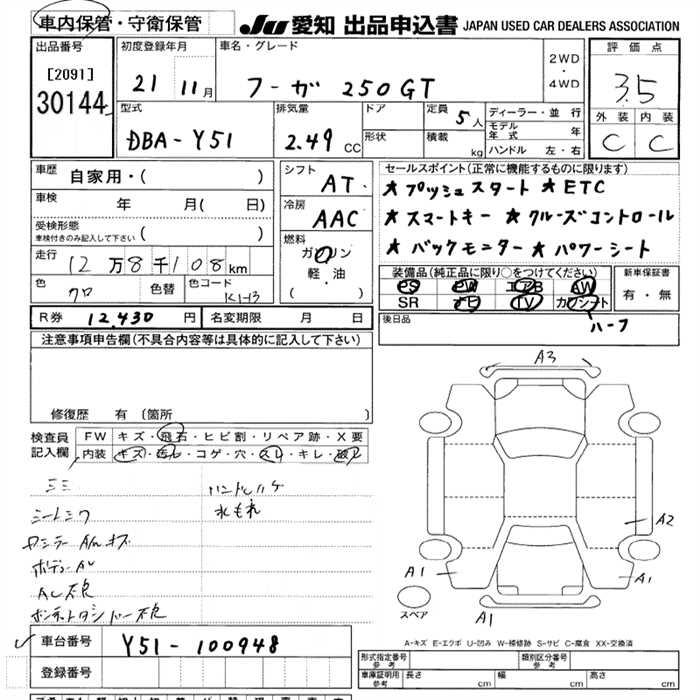 車内保管・守衛保管
JU 愛知 出品申込書 JAPAN USED CAR DEALERS ASSOCIATION
出品番号
[2091]
30144
初度登録年月
21 11月
車名・グレード
フーガ 250GT
2WD
・
4WD
評価点
3.5
外装 内装
C C
型式
DBA-Y51
排気量
2.49 CC
ドア
形状
定員 5人
積載 kg
ディーラー・並 行
モデル年式 年
ハンドル 左・右
車歴 自家用・( )
車検 年 月( 日)
受検形態
車検付きのみ記入して下さい ( )
走行 12万8千108km
色 クロ
色替
色コード K1-13
シフト AT
冷房 AAC
燃料
ガソリン
軽・油
( )
セールスポイント(正常に機能するものに限ります)
★プッシュスタート ★ETC
★スマートキー ★クルーズコントロール
★バックモニター ★パワーシート
装備品(純正品に限り○をつけてください)
PS PW エアB AW
SR ナビ TV カワシート
ハーフ
新車保証書
有・無
後日品
R券 12,430 円
名変期限 月 日
注意事項申告欄(不具合内容等は具体的に記入して下さい)
修復歴 有 〔箇所
検査員記入欄
FW キズ・飛石・ヒビ割・リペア跡・X要
内装 キズ・汚レ・コゲ・穴・スレ・キレ・破レ
ミミ
ハンドルハゲ
シートシワ
水もれ
A3
A2
A1
A1
A1
スペア
A-キズ E-エクボ U-凹み W-補修跡 S-サビ C-腐食 XX-交換済
車台番号 Y51-100948
登録番号
形式指定番号
参考
類別区分番号
参考
車庫証明用
参考
長さ cm
幅 cm
高さ cm